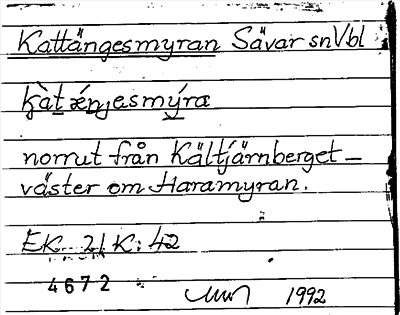 Kattängesmyran Sävar sn Vbl
kàt æ̀njesmýra
norrut från Kältjärnberget –
väster om Haramyran.
EK 21 K: 42
4672
1992